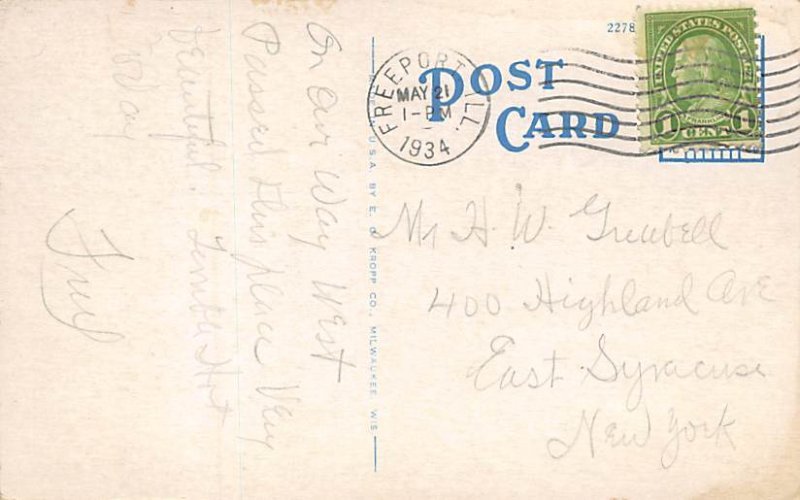 On our Way West
Passed this place Very
beautiful. Terrible Hot
today
Fred
MADE IN U.S.A. BY E. C. KROPP CO., MILWAUKEE, WIS.
2278
POST
CARD
FREEPORT, ILL.
MAY 21
1-PM
1934
UNITED STATES POSTAGE
FRANKLIN
1 CENT 1
Mr H. W. Greabell
400 Highland Ave
East Syracuse
New York